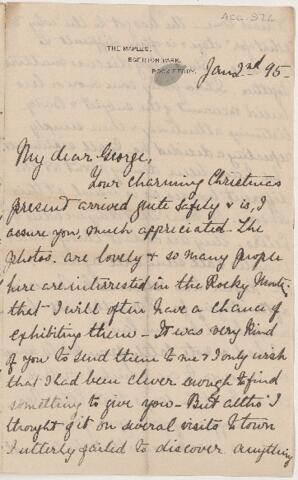 Acc. 576
THE MAPLES,
EGERTON PARK,
ROCK FERRY.
Jan 2nd 95 -
My dear George,
Your charming Christmas
present arrived quite safely & is, I
assure you, much appreciated - The
photos. are lovely & so many people
here are interrested in the Rocky Mntns.
that I will often have a chance of
exhibiting them - It was very kind
of you to send them to me & I only wish
that I had been clever enough to find
something to give you - But altho' I
thought of it on several visits to town
I utterly failed to discover anything